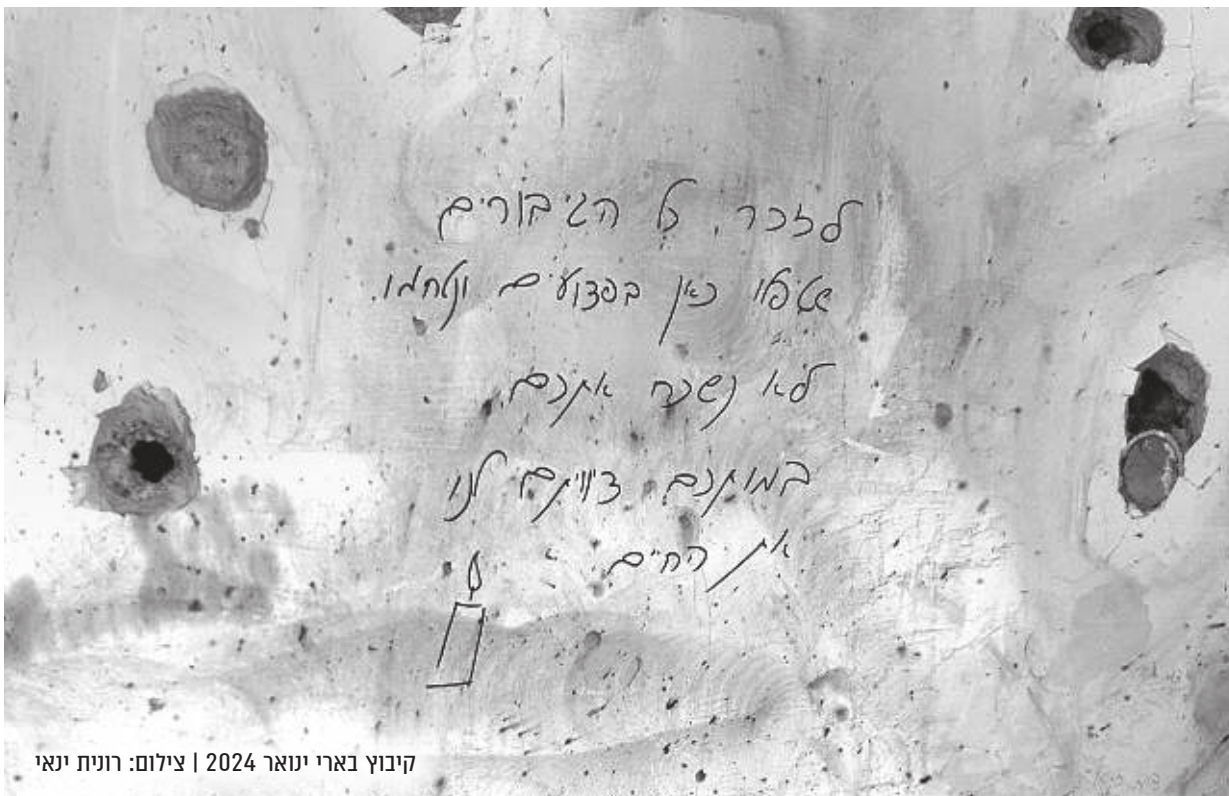 לזכר כל הגיבורים
שטיפלו כאן בפצועים ונלחמו.
לא נשכח אתכם.
במותכם ציוויתם לנו
את החיים
קיבוץ בארי ינואר 2024 | צילום: רונית ינאי